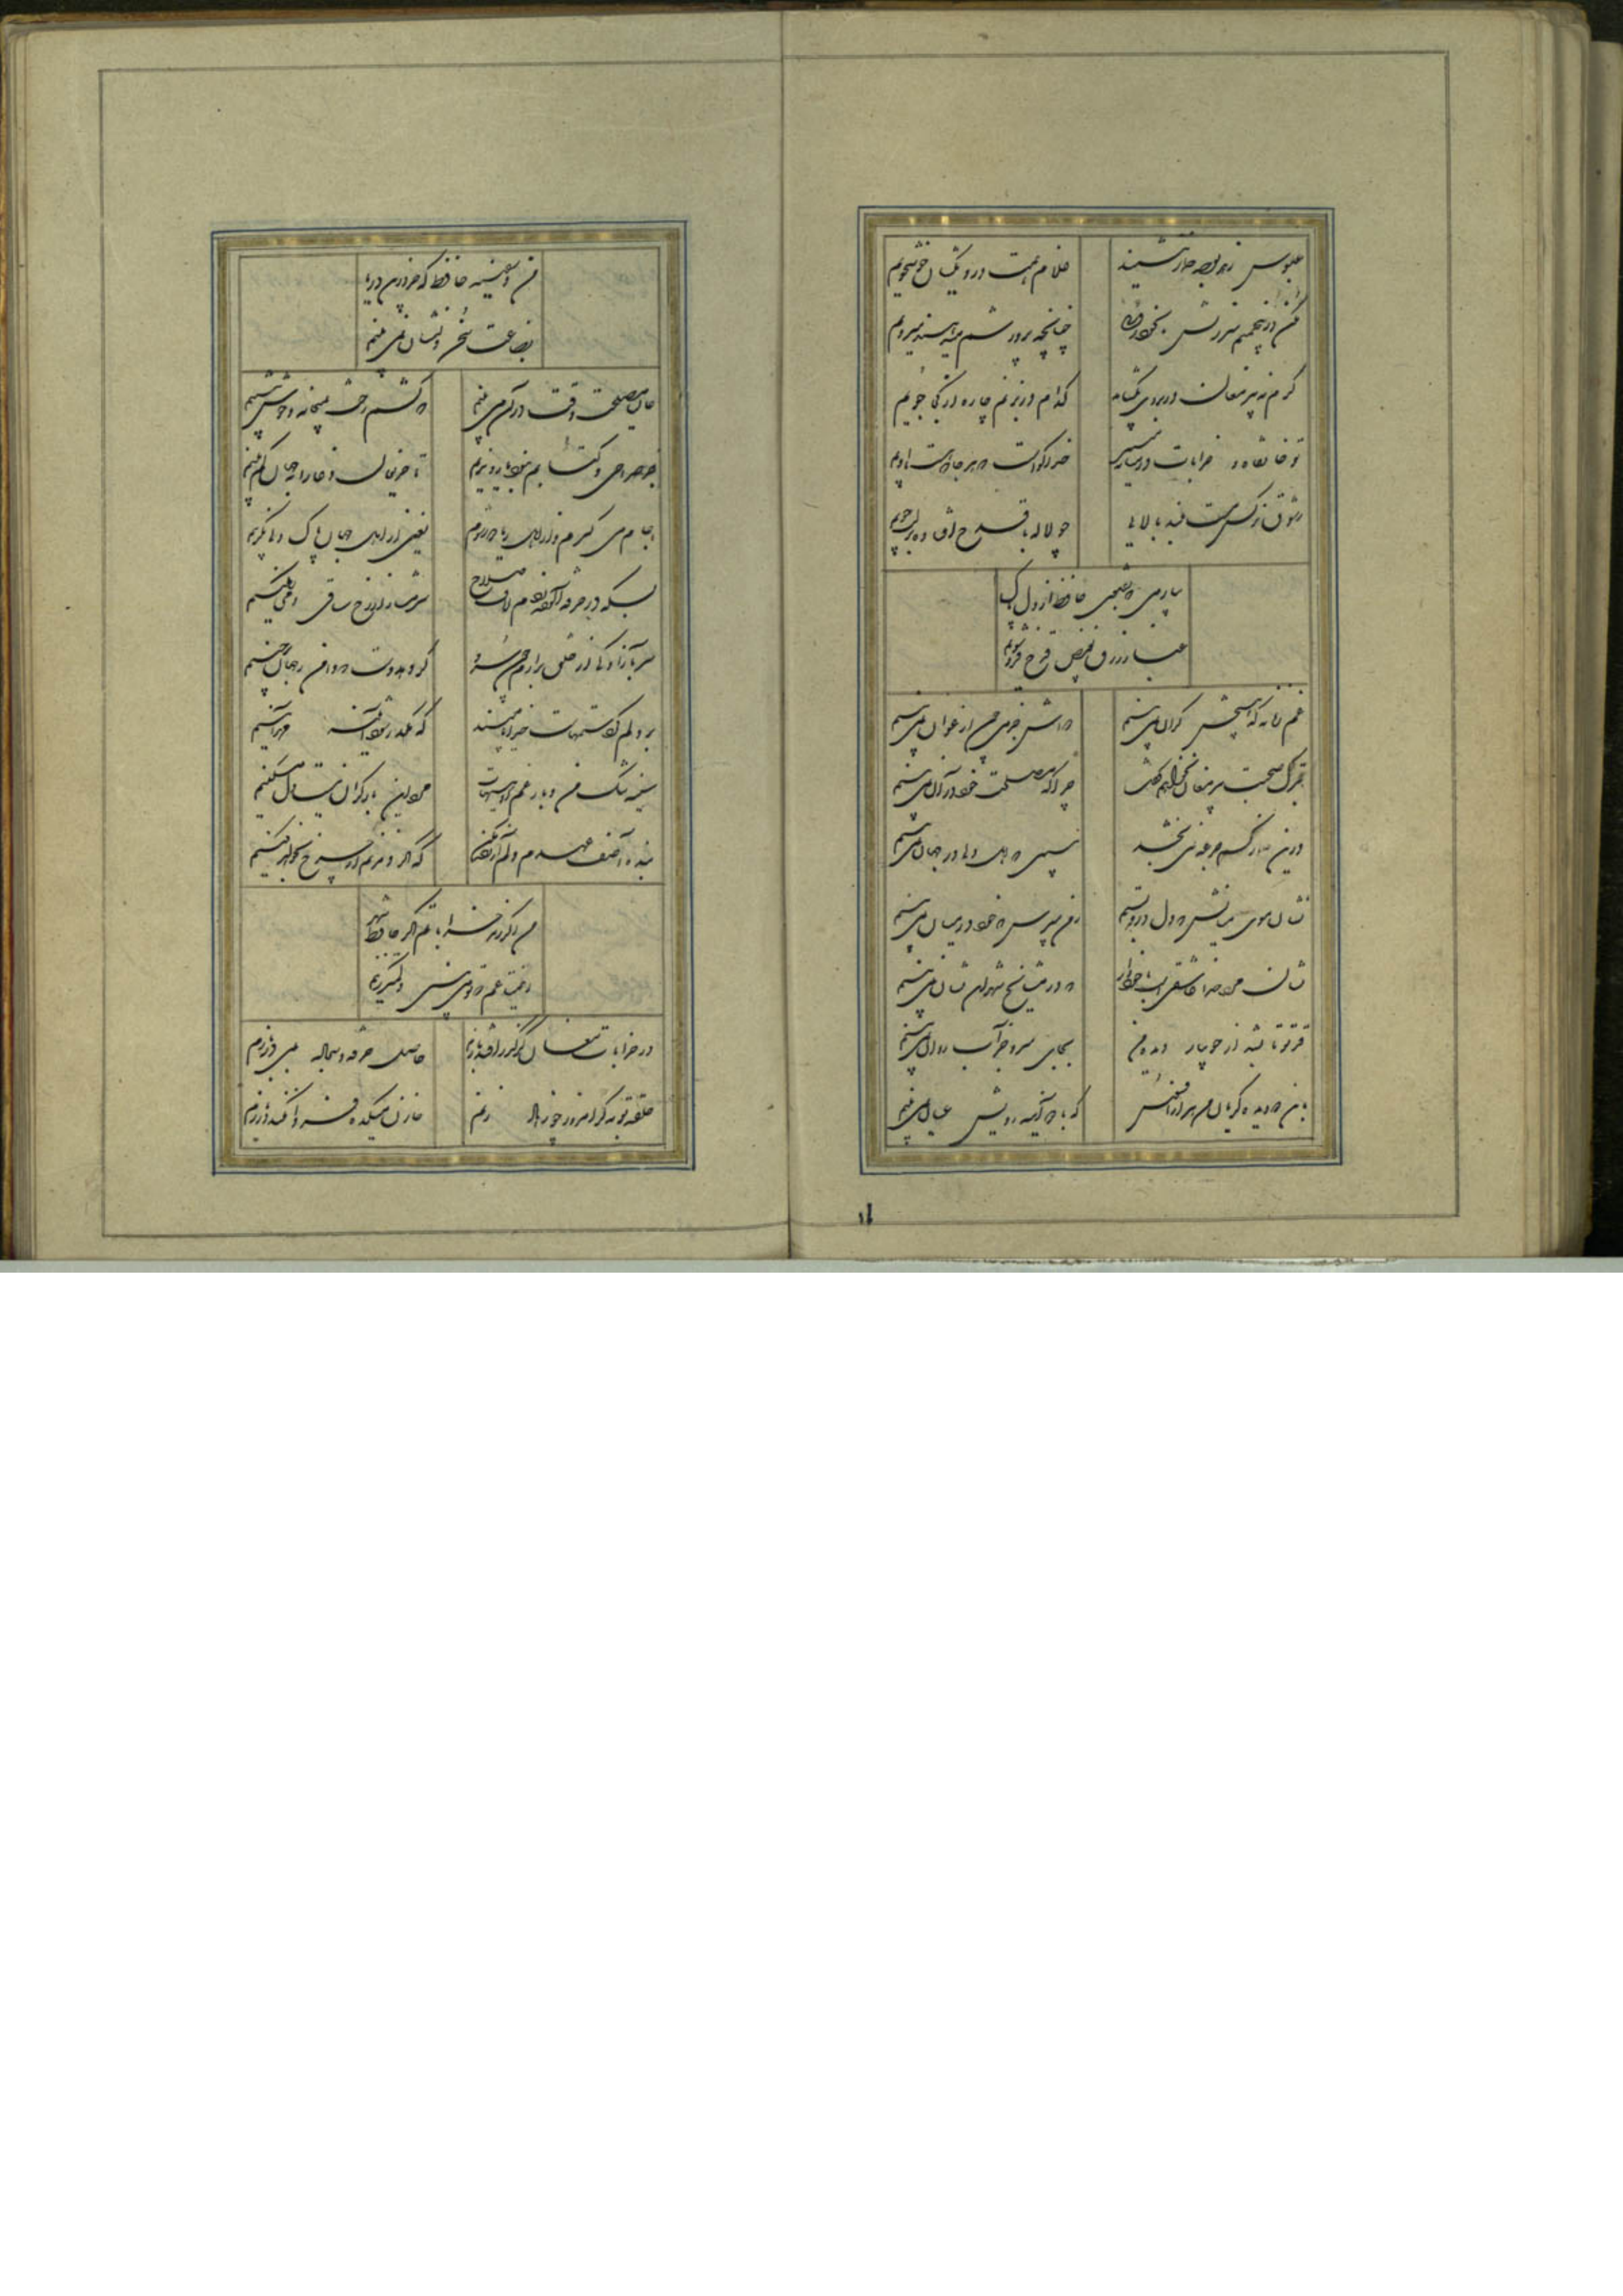 عبوس زهد بوجه خمار ننشیند
غلام همت دردی کشان خوشخویم
مکن درین چمنم سرزنش بخودرویی
چنانچه پرورشم میدهند میرویم
گرم نه پیر مغان در بروی بگشاید
کدام در بزنم چاره از کجا جویم
تو خانقاه و خرابات در میانه مبین
خدا گواست که هر جا که هست با اویم
ز شوق نرگس مست بلند بالایی
چو لاله با قدح افتاده بر لب جویم
بیار می که بفتوی حافظ از دل پاک
غبار زرق بفیض قدح فرو شویم
غم زمانه که هیچش کران نمی بینم
دواش جز می چون ارغوان نمی بینم
بترک صحبت پیر مغان نخواهم گفت
چرا که مصلحت خود در آن نمی بینم
درین خمار کسم جرعه نمی بخشد
ببین که اهل دلی در جهان نمی بینم
نشان موی میانش که دل درو بستم
ز من مپرس که خود در میان نمی بینم
نشان مرد خدا عاشقیست با خود دار
که در مشایخ شهر این نشان نمی بینم
قد تو تا بشد از جویبار دیده من
بجای سرو جز آب روان نمی بینم
بدین دو دیده گریان من هزار افسوس
که با دو آینه رویش عیان نمی بینم
من و سفینه حافظ که جز درین دریا
بضاعت سخن دلنشان نمی بینم
حالیا مصلحت وقت در آن می بینم
که کشم رخت بمیخانه و خوش بنشینم
جز صراحی و کتابم نبود یار و ندیم
تا حریفان دغا را بجهان کم بینم
جام می گیرم و از اهل ریا دور شوم
یعنی از اهل جهان پاک دلی بگزینم
بسکه در خرقه آلوده زدم لاف صلاح
شرمسار از رخ ساقی و می رنگینم
سر بآزادگی از خلق برآرم چون سرو
گر دهد دست که دامن ز جهان درچینم
بر دلم گرد ستمهاست خدایا مپسند
که مکدر شود آینه مهرآیینم
سینه تنگ من و بار غم او هیهات
مرد این بار گران نیست دل مسکینم
بنده آصف عهدم دلم آزرده مکن
که اگر دم زنم از چرخ بخواهد کینم
من اگر رند خراباتم اگر حافظ شهر
این متاعم که تو می بینی و کمتر زینم
در خرابات مغان گر گذر افتد بازم
حاصل خرقه و سجاده می دربازم
حلقه توبه گر امروز چو زهاد زنم
خازن میکده فردا نکند در بازم